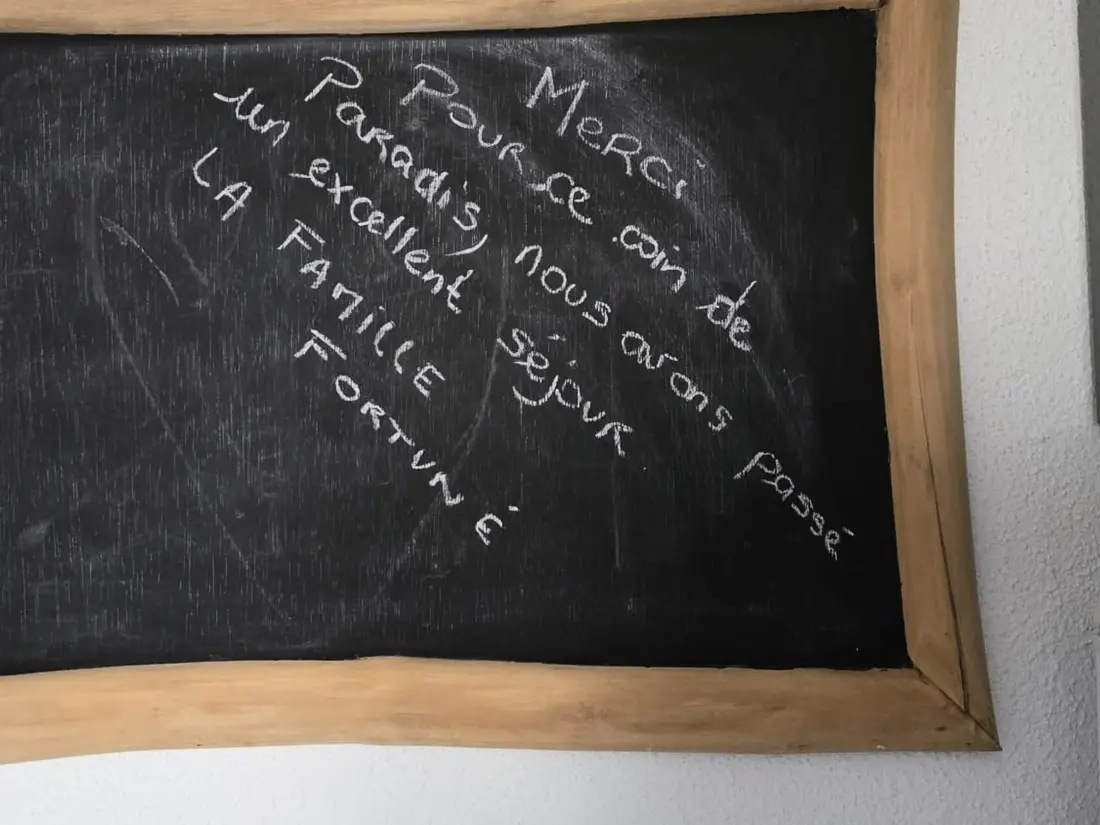 Merci
Pour ce coin de
Paradis, nous avons passé
un excellent séjour
LA FAMILLE
FORTUNÉ